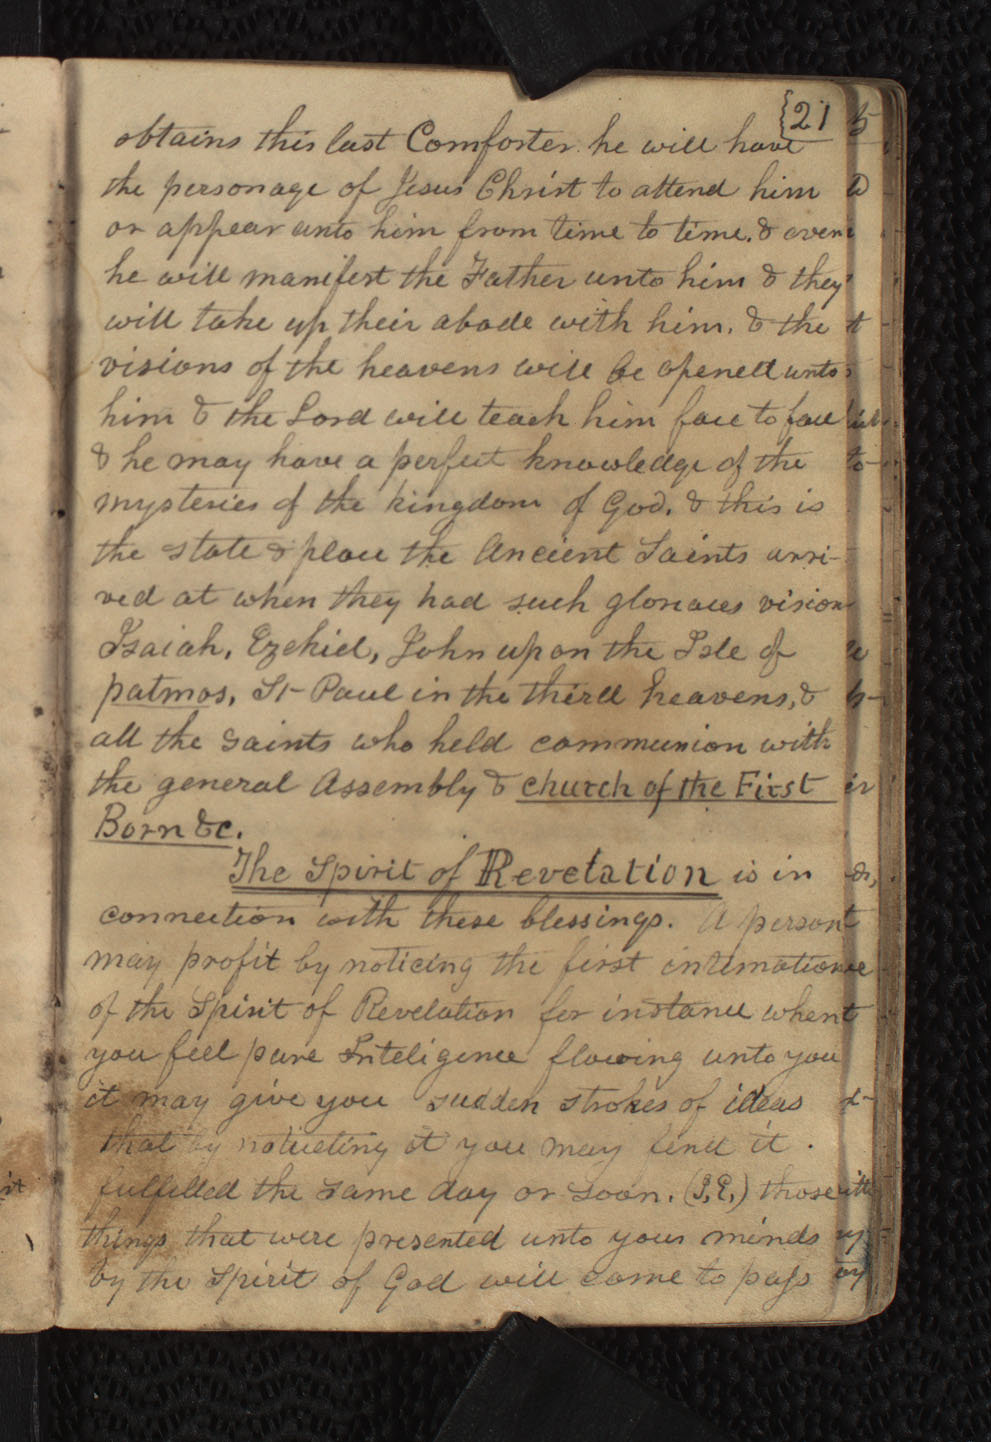 {21
obtains this last Comforter he will have
the personage of Jesus Christ to attend him
or appear unto him from time to time. & even
he will manifest the Father unto him & they
will take up their abode with him. & the
visions of the heavens will be opened unto
him & the Lord will teach him face to face
& he may have a perfect knowledge of the
mysteries of the kingdom of God. & this is
the state & place the Ancient Saints arri-
ved at when they had such glorious vision
Isaiah, Ezekiel, John upon the Isle of
patmos, St Paul in the third heavens, &
all the saints who held communion with
the general Assembly & church of the First
Born &c.
The Spirit of Revelation is in
connection with these blessings. A person
may profit by noticing the first intimation
of the Spirit of Revelation for instance when
you feel pure Inteligence flowing unto you
it may give you sudden strokes of ideas
that by noticeing it you may find it.
fulfilled the same day or soon. (I,E,) those
things that were presented unto your minds
by the Spirit of God will come to pass